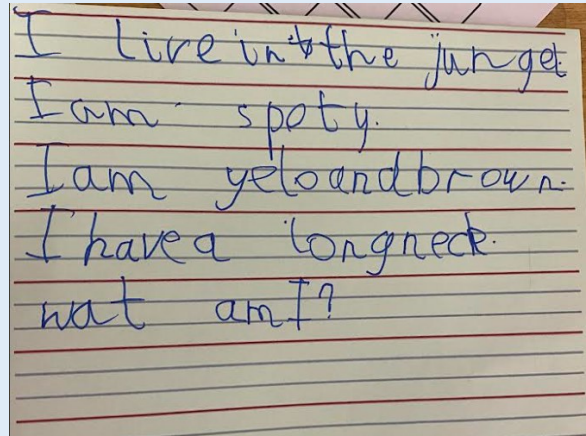 I live in the jungel
I am spoty.
I am yelo and brown.
I have a long neck.
wat am I?